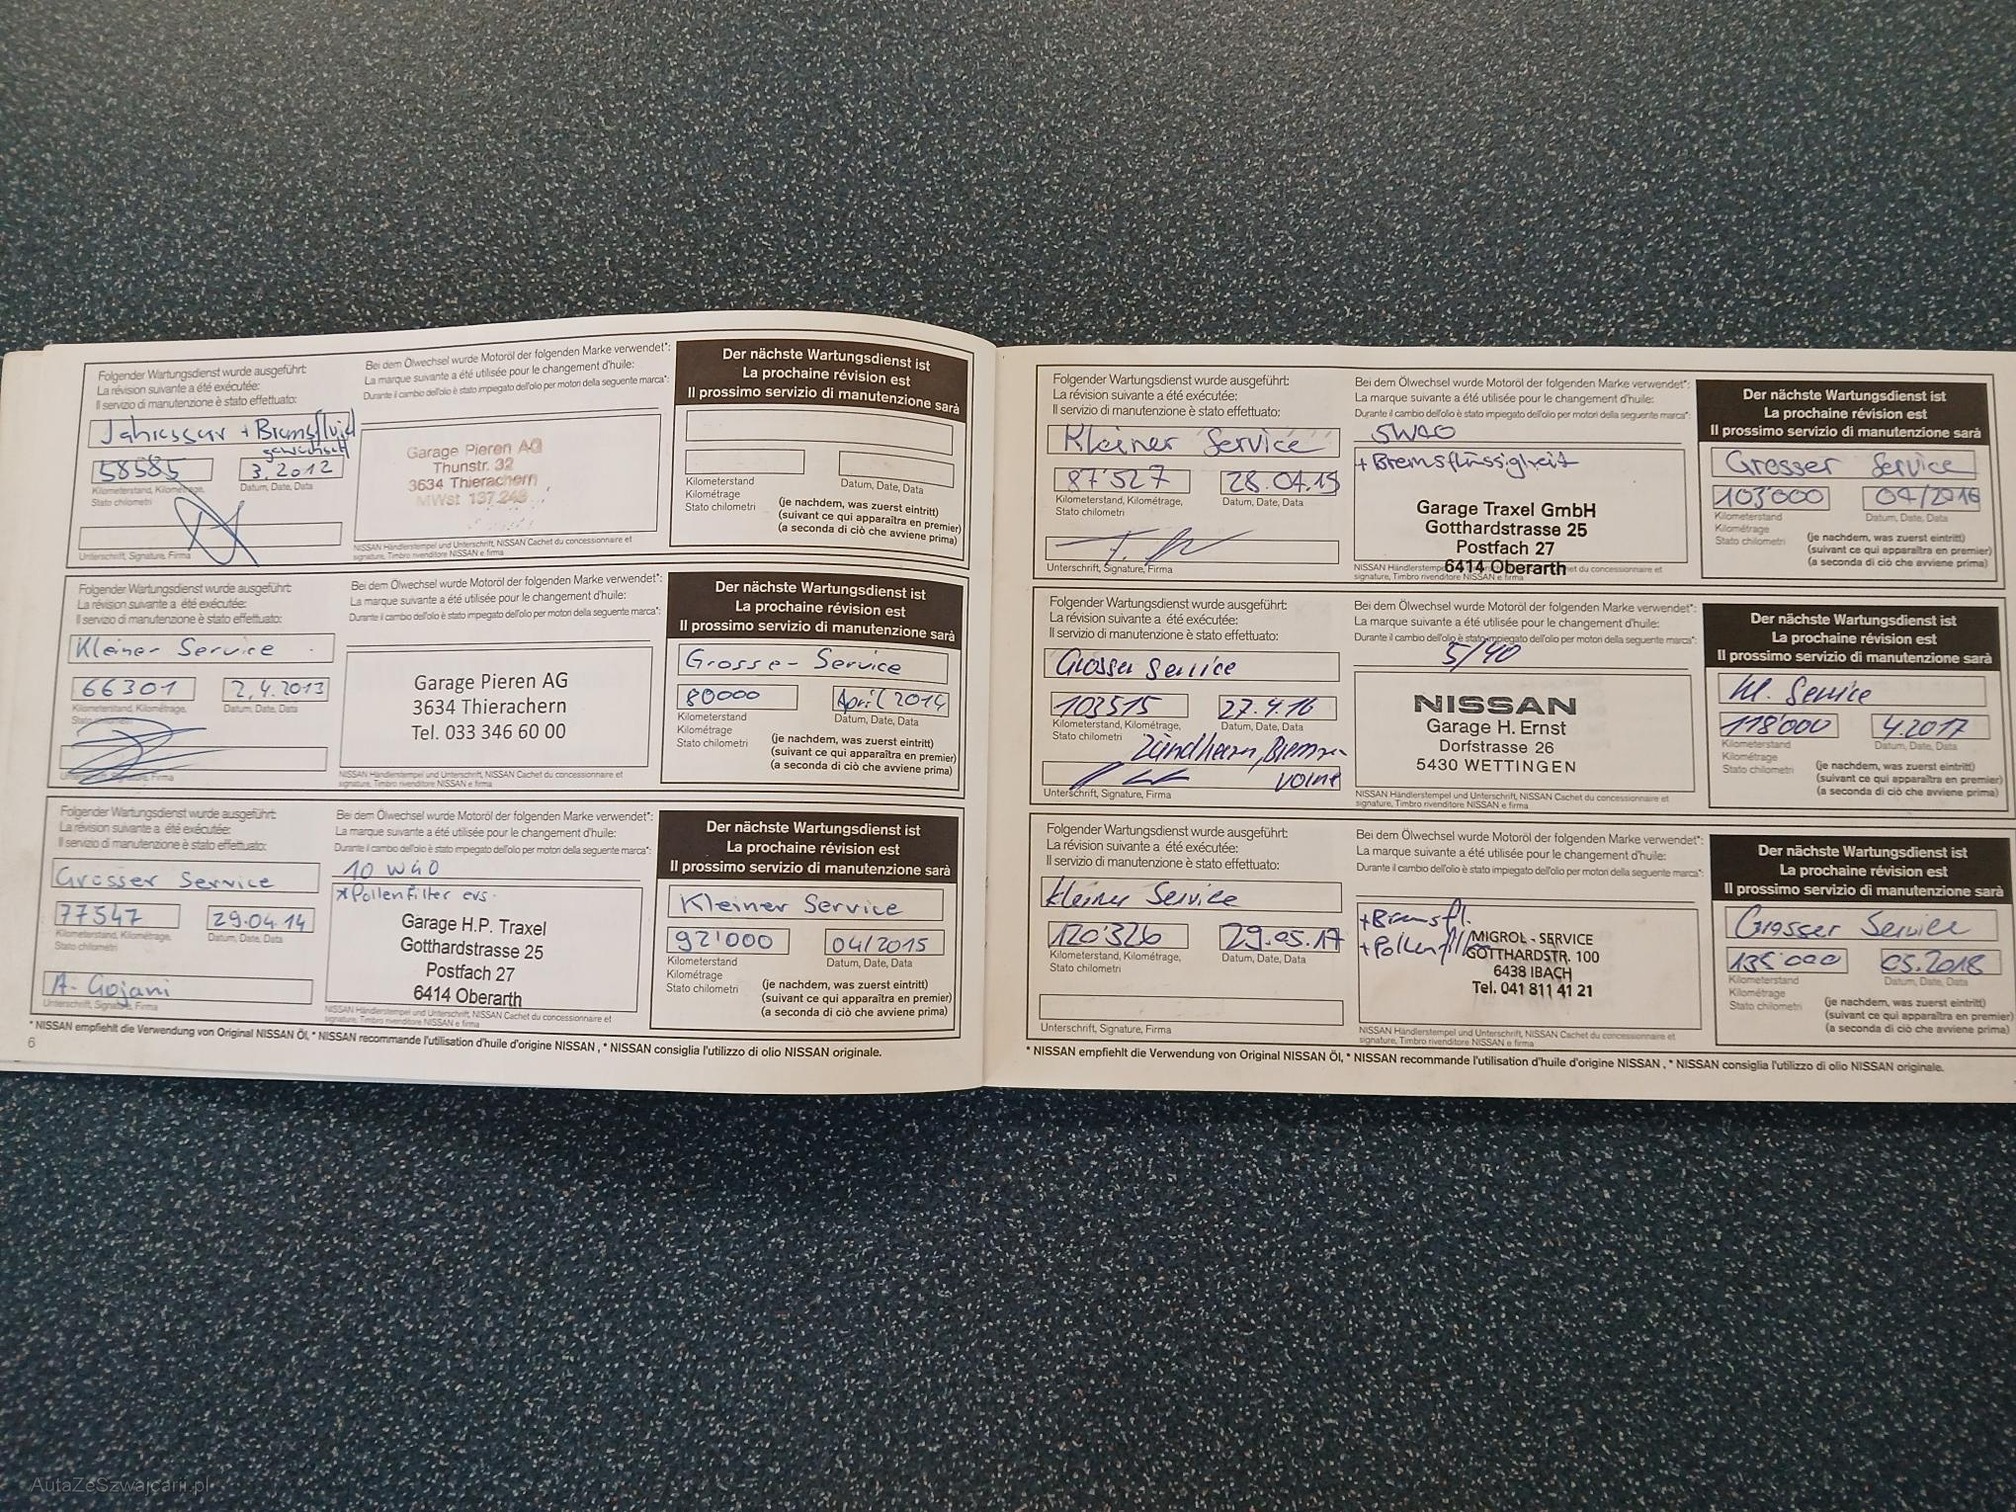 Folgender Wartungsdienst wurde ausgeführt:
La révision suivante a été exécutée:
Il servizio di manutenzione è stato effettuato:
Jahresser + Bremsfluid
gewechselt
58585
3.2012
Kilometerstand, Kilométrage,
Stato chilometri
Datum, Date, Data
Unterschrift, Signature, Firma
Bei dem Ölwechsel wurde Motoröl der folgenden Marke verwendet*:
La marque suivante a été utilisée pour le changement d'huile:
Durante il cambio dell'olio è stato impiegato dell'olio per motori della seguente marca*:
Garage Pieren AG
Thunstr. 32
3634 Thierachern
MWst 137 248
NISSAN Händlerstempel und Unterschrift, NISSAN Cachet du concessionnaire et
signature, Timbro rivenditore NISSAN e firma
Der nächste Wartungsdienst ist
La prochaine révision est
Il prossimo servizio di manutenzione sarà
Kilometerstand
Kilométrage
Stato chilometri
Datum, Date, Data
(je nachdem, was zuerst eintritt)
(suivant ce qui apparaîtra en premier)
(a seconda di ciò che avviene prima)
Folgender Wartungsdienst wurde ausgeführt:
La révision suivante a été exécutée:
Il servizio di manutenzione è stato effettuato:
Kleiner Service
66301
2,4.2013
Kilometerstand, Kilométrage,
Datum, Date, Data
Bei dem Ölwechsel wurde Motoröl der folgenden Marke verwendet*:
La marque suivante a été utilisée pour le changement d'huile:
Durante il cambio dell'olio è stato impiegato dell'olio per motori della seguente marca*:
Garage Pieren AG
3634 Thierachern
Tel. 033 346 60 00
NISSAN Händlerstempel und Unterschrift, NISSAN Cachet du concessionnaire et
signature, Timbro rivenditore NISSAN e firma
Der nächste Wartungsdienst ist
La prochaine révision est
Il prossimo servizio di manutenzione sarà
Grosse - Service
80000
April 2014
Kilometerstand
Kilométrage
Stato chilometri
Datum, Date, Data
(je nachdem, was zuerst eintritt)
(suivant ce qui apparaîtra en premier)
(a seconda di ciò che avviene prima)
Folgender Wartungsdienst wurde ausgeführt:
La révision suivante a été exécutée:
Il servizio di manutenzione è stato effettuato:
Grosser Service
77547
29.04.14
Kilometerstand, Kilométrage,
Stato chilometri
Datum, Date, Data
A. Gojani
Unterschrift, Signature, Firma
Bei dem Ölwechsel wurde Motoröl der folgenden Marke verwendet*:
La marque suivante a été utilisée pour le changement d'huile:
Durante il cambio dell'olio è stato impiegato dell'olio per motori della seguente marca*:
10 W40
*Pollenfilter ers.
Garage H.P. Traxel
Gotthardstrasse 25
Postfach 27
6414 Oberarth
NISSAN Händlerstempel und Unterschrift, NISSAN Cachet du concessionnaire et
signature, Timbro rivenditore NISSAN e firma
Der nächste Wartungsdienst ist
La prochaine révision est
Il prossimo servizio di manutenzione sarà
Kleiner Service
92'000
04/2015
Kilometerstand
Kilométrage
Stato chilometri
Datum, Date, Data
(je nachdem, was zuerst eintritt)
(suivant ce qui apparaîtra en premier)
(a seconda di ciò che avviene prima)
* NISSAN empfiehlt die Verwendung von Original NISSAN Öl, * NISSAN recommande l'utilisation d'huile d'origine NISSAN , * NISSAN consiglia l'utilizzo di olio NISSAN originale.
6
Folgender Wartungsdienst wurde ausgeführt:
La révision suivante a été exécutée:
Il servizio di manutenzione è stato effettuato:
Kleiner Service
87'527
28.04.15
Kilometerstand, Kilométrage,
Stato chilometri
Datum, Date, Data
Unterschrift, Signature, Firma
Bei dem Ölwechsel wurde Motoröl der folgenden Marke verwendet*:
La marque suivante a été utilisée pour le changement d'huile:
Durante il cambio dell'olio è stato impiegato dell'olio per motori della seguente marca*:
5W40
+Bremsflüssigkeit
Garage Traxel GmbH
Gotthardstrasse 25
Postfach 27
6414 Oberarth
signature, Timbro rivenditore NISSAN e firma
Der nächste Wartungsdienst ist
La prochaine révision est
Il prossimo servizio di manutenzione sarà
Grosser Service
103'000
04/2016
Kilometerstand
Kilométrage
Stato chilometri
Datum, Date, Data
(je nachdem, was zuerst eintritt)
(suivant ce qui apparaîtra en premier)
(a seconda di ciò che avviene prima)
Folgender Wartungsdienst wurde ausgeführt:
La révision suivante a été exécutée:
Il servizio di manutenzione è stato effettuato:
Grosser Service
103515
27.4.16
Kilometerstand, Kilométrage,
Stato chilometri
Datum, Date, Data
Unterschrift, Signature, Firma
Bei dem Ölwechsel wurde Motoröl der folgenden Marke verwendet*:
La marque suivante a été utilisée pour le changement d'huile:
Durante il cambio dell'olio è stato impiegato dell'olio per motori della seguente marca*:
5/40
NISSAN
Garage H. Ernst
Dorfstrasse 26
5430 WETTINGEN
NISSAN Händlerstempel und Unterschrift, NISSAN Cachet du concessionnaire et
signature, Timbro rivenditore NISSAN e firma
Der nächste Wartungsdienst ist
La prochaine révision est
Il prossimo servizio di manutenzione sarà
Kl. Service
118'000
4.2017
Kilometerstand
Kilométrage
Stato chilometri
Datum, Date, Data
(je nachdem, was zuerst eintritt)
(suivant ce qui apparaîtra en premier)
(a seconda di ciò che avviene prima)
Folgender Wartungsdienst wurde ausgeführt:
La révision suivante a été exécutée:
Il servizio di manutenzione è stato effettuato:
kleiner Service
120'326
29.05.17
Kilometerstand, Kilométrage,
Stato chilometri
Datum, Date, Data
Unterschrift, Signature, Firma
Bei dem Ölwechsel wurde Motoröl der folgenden Marke verwendet*:
La marque suivante a été utilisée pour le changement d'huile:
Durante il cambio dell'olio è stato impiegato dell'olio per motori della seguente marca*:
+Bremsfl.
+Pollenfilt
MIGROL - SERVICE
GOTTHARDSTR. 100
6438 IBACH
Tel. 041 811 41 21
NISSAN Händlerstempel und Unterschrift, NISSAN Cachet du concessionnaire et
signature, Timbro rivenditore NISSAN e firma
Der nächste Wartungsdienst ist
La prochaine révision est
Il prossimo servizio di manutenzione sarà
Grosser Service
135'000
05.2018
Kilometerstand
Kilométrage
Stato chilometri
Datum, Date, Data
(je nachdem, was zuerst eintritt)
(suivant ce qui apparaîtra en premier)
(a seconda di ciò che avviene prima)
* NISSAN empfiehlt die Verwendung von Original NISSAN Öl, * NISSAN recommande l'utilisation d'huile d'origine NISSAN , * NISSAN consiglia l'utilizzo di olio NISSAN originale.
AutaZeSzwajcarii.pl